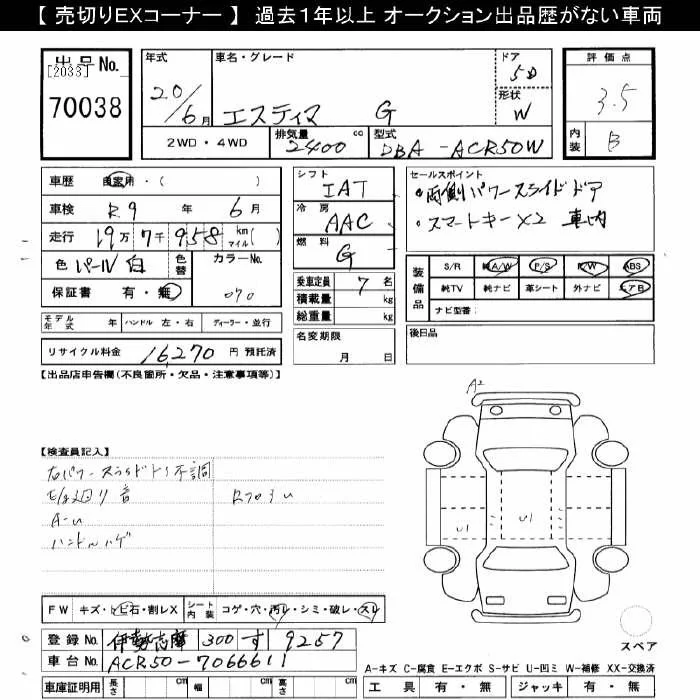 【 売切りEXコーナー 】 過去1年以上 オークション出品歴がない車両
出品No. [2033] 70038
年式 20/6月
車名・グレード エスティマ G
ドア 5D
形状 W
評価点 3.5
内装 B
2WD・4WD
排気量 2400 cc
型式 DBA-ACR50W
車歴 自家用・( )
車検 R.9 年 6 月
走行 19万7千958 km マイル( )
色 パール白 色替 カラーNo. 070
保証書 有・無
シフト IAT
冷房 AAC
燃料 G
乗車定員 7 名
積載量 kg
総重量 kg
セールスポイント
・両側パワースライドドア
・スマートキー×2 車内
装備品 S/R 純A/W P/S P/W ABS
純TV 純ナビ 革シート 外ナビ エアB
ナビ型番:
モデル年式 年 ハンドル 左・右 ディーラー・並行
リサイクル料金 16,270 円 預託済
名変期限 月 日
後日品
【出品店申告欄(不良個所・欠品・注意事項等)】
A2
【検査員記入】
右パワースライドドア不調
足廻り音
A-U
ハンドルハゲ
U1 U1
FW キズ・トビ石・割レX シート内装 コゲ・穴・汚レ・シミ・破レ・スレ
登録No. 伊勢志摩 300 す 9257
車台No. ACR50-7066611
スペア
車庫証明用 長さ cm 幅 cm 高さ cm
A-キズ C-腐食 E-エクボ S-サビ U-凹ミ W-補修 XX-交換済
工具 有・無 ジャッキ 有・無